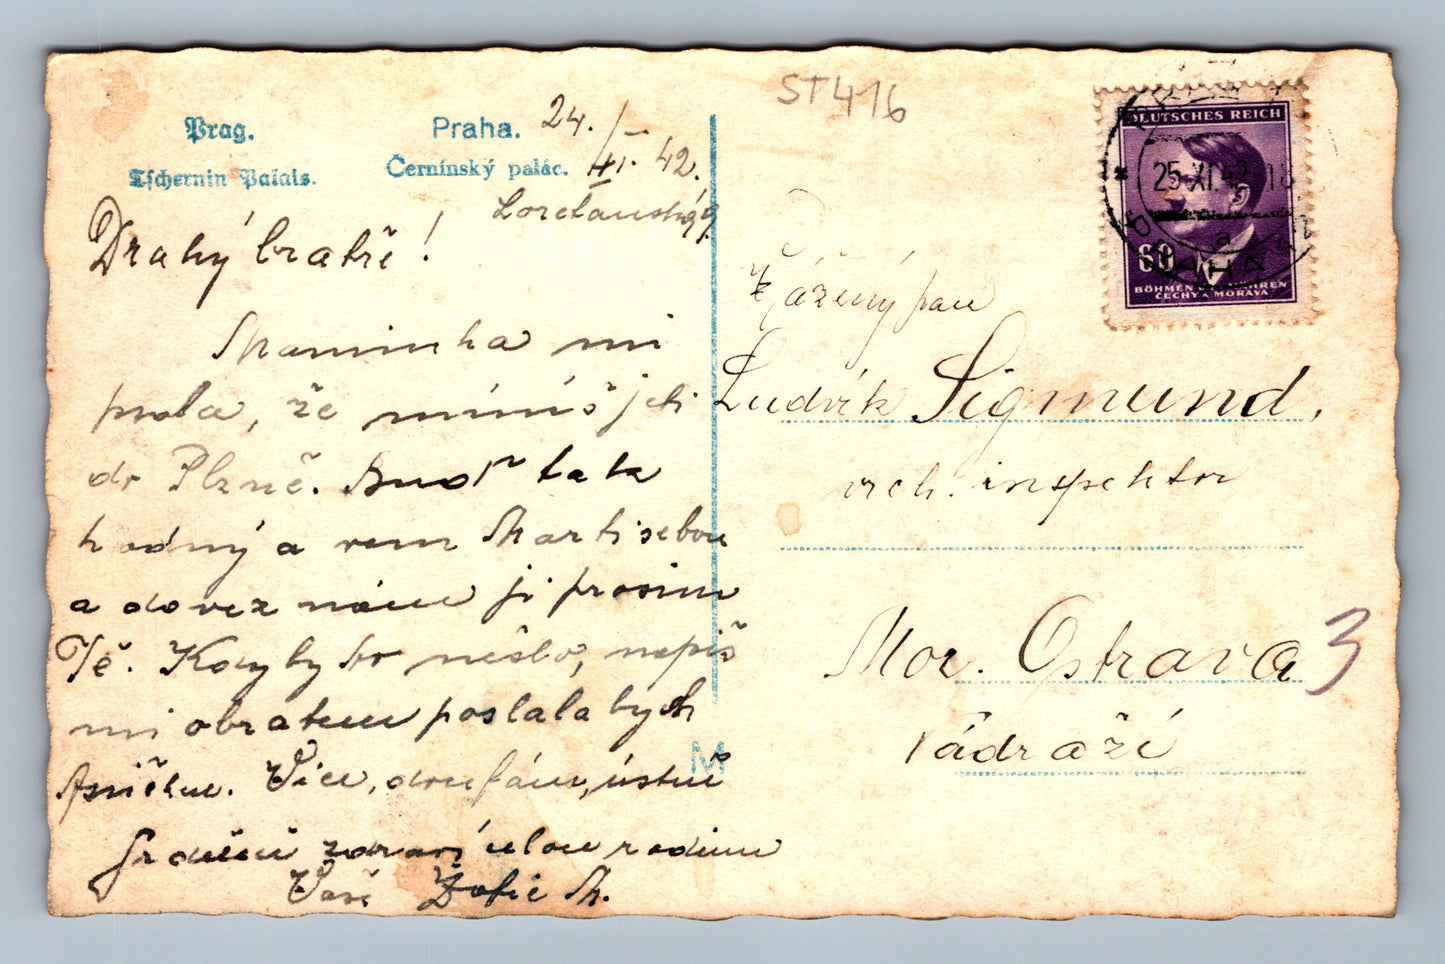 ST416
Prag.
Tschernin Palais.
Praha.
Černínský palác.
24./XI. 42.
Loretánská
Drahý bratře!
Maminka mi
psala, že míníš jeti
do Plzně. Buď tak
hodný a vem Marti sebou
a dovez nám ji prosím
Tě. Kdyby to nešlo, napiš
mi obratem poslala bych
Více, doufám, ústně
Srdečně zdraví celou rodinu
Vaše Žofie M.
M
DEUTSCHES REICH
25.XI.42.18
PRAHA
a
60
BÖHMEN MÄHREN
ČECHY A MORAVA
Vážený pan
Ludvík Sigmund,
vrch. inspektor
Mor. Ostrava 3
Nádraží